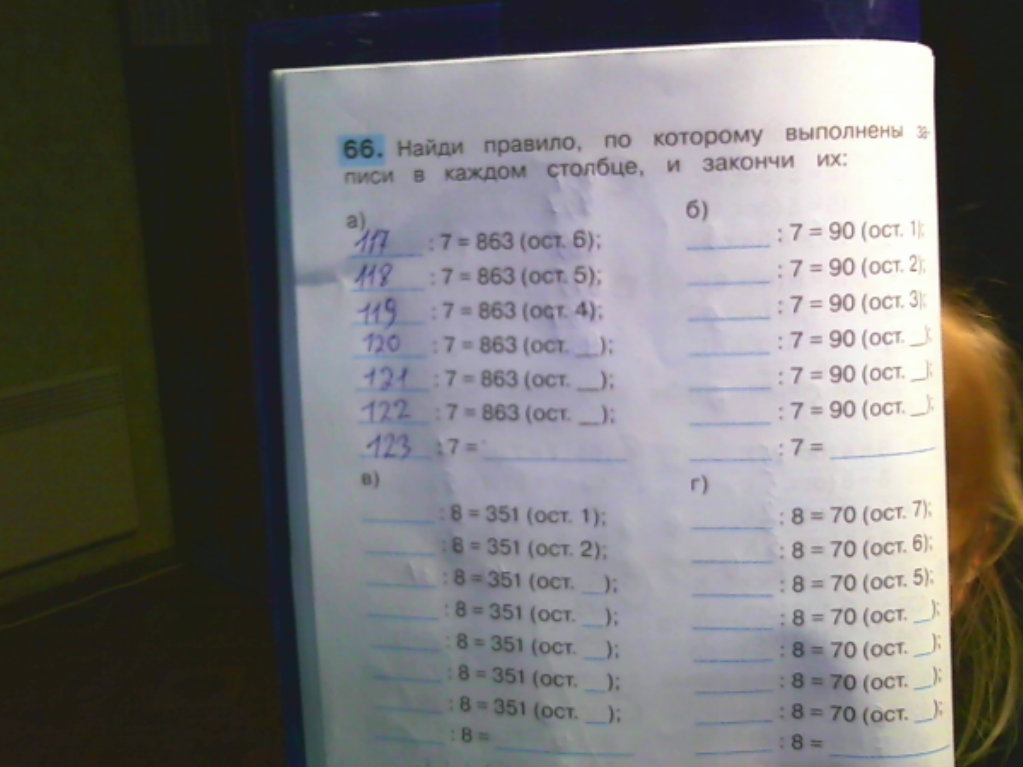 66. Найди правило, по которому выполнены за-
писи в каждом столбце, и закончи их:
а)
117 : 7 = 863 (ост. 6);
118 : 7 = 863 (ост. 5);
119 : 7 = 863 (ост. 4);
120 : 7 = 863 (ост. __);
121 : 7 = 863 (ост. __);
122 : 7 = 863 (ост. __);
123 : 7 = ________
б)
______ : 7 = 90 (ост. 1);
______ : 7 = 90 (ост. 2);
______ : 7 = 90 (ост. 3);
______ : 7 = 90 (ост. __);
______ : 7 = 90 (ост. __);
______ : 7 = 90 (ост. __);
______ : 7 = ________
в)
______ : 8 = 351 (ост. 1);
______ : 8 = 351 (ост. 2);
______ : 8 = 351 (ост. __);
______ : 8 = 351 (ост. __);
______ : 8 = 351 (ост. __);
______ : 8 = 351 (ост. __);
______ : 8 = 351 (ост. __);
______ : 8 = ________
г)
______ : 8 = 70 (ост. 7);
______ : 8 = 70 (ост. 6);
______ : 8 = 70 (ост. 5);
______ : 8 = 70 (ост. __);
______ : 8 = 70 (ост. __);
______ : 8 = 70 (ост. __);
______ : 8 = 70 (ост. __);
______ : 8 = ________